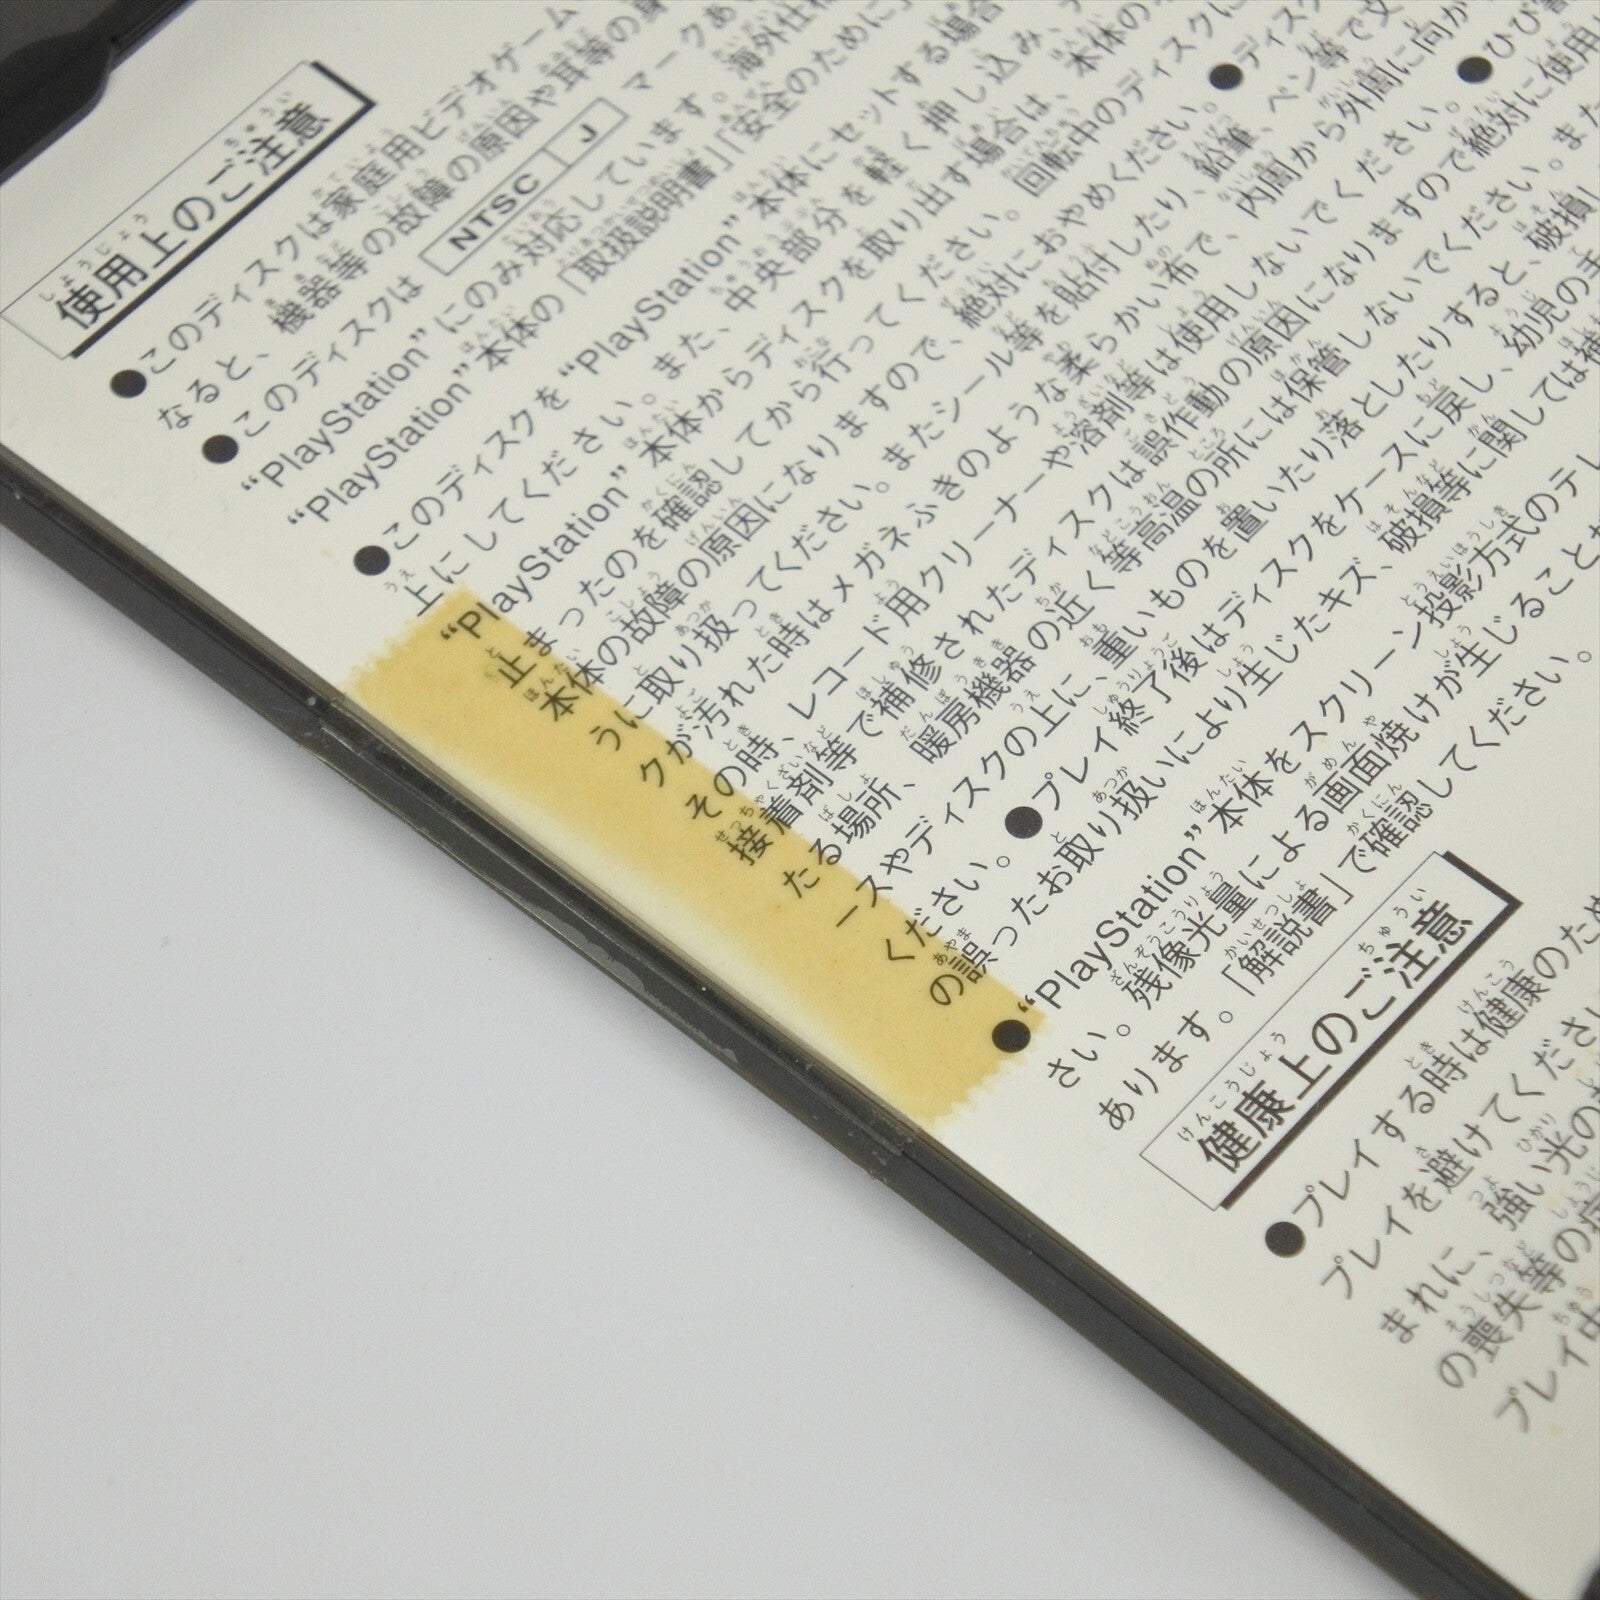 使用上のご注意
●このディスクは家庭用ビデオゲーム
なると、機器等の故障の原因や耳等の身
●このディスクは NTSC J マークあ
“PlayStation” にのみ対応しています。海外仕様
“PlayStation” 本体の「取扱説明書」「安全のために」
●このディスクを “PlayStation” 本体にセットする場合
上にしてください。また、中央部分を軽く押し込み、
“PlayStation” 本体からディスクを取り出す場合は、本体の
止まったのを確認してから行ってください。回転中のディスクに
本体の故障の原因になりますので、絶対におやめください。●ディスク
うに取り扱ってください。またシール等を貼付したり、鉛筆、ペン等で文
クが汚れた時はメガネふきのような柔らかい布で、内周から外周に向か
その時、レコード用クリーナーや溶剤等は使用しないでください。●ひび
接着剤等で補修されたディスクは誤作動の原因になりますので絶対に使用
たる場所、暖房機器の近く等高温の所には保管しないでください。また
ースやディスクの上に、重いものを置いたり落としたりすると、破損し
ください。●プレイ終了後はディスクをケースに戻し、幼児の手
の誤ったお取り扱いにより生じたキズ、破損等に関しては補
●“PlayStation” 本体をスクリーン投影方式のテレ
さい。残像光量による画面焼けが生じること
あります。「解説書」で確認してください。
健康上のご注意
●プレイする時は健康のため
プレイを避けてくださ
まれに、強い光の
の喪失等の症
プレイ中